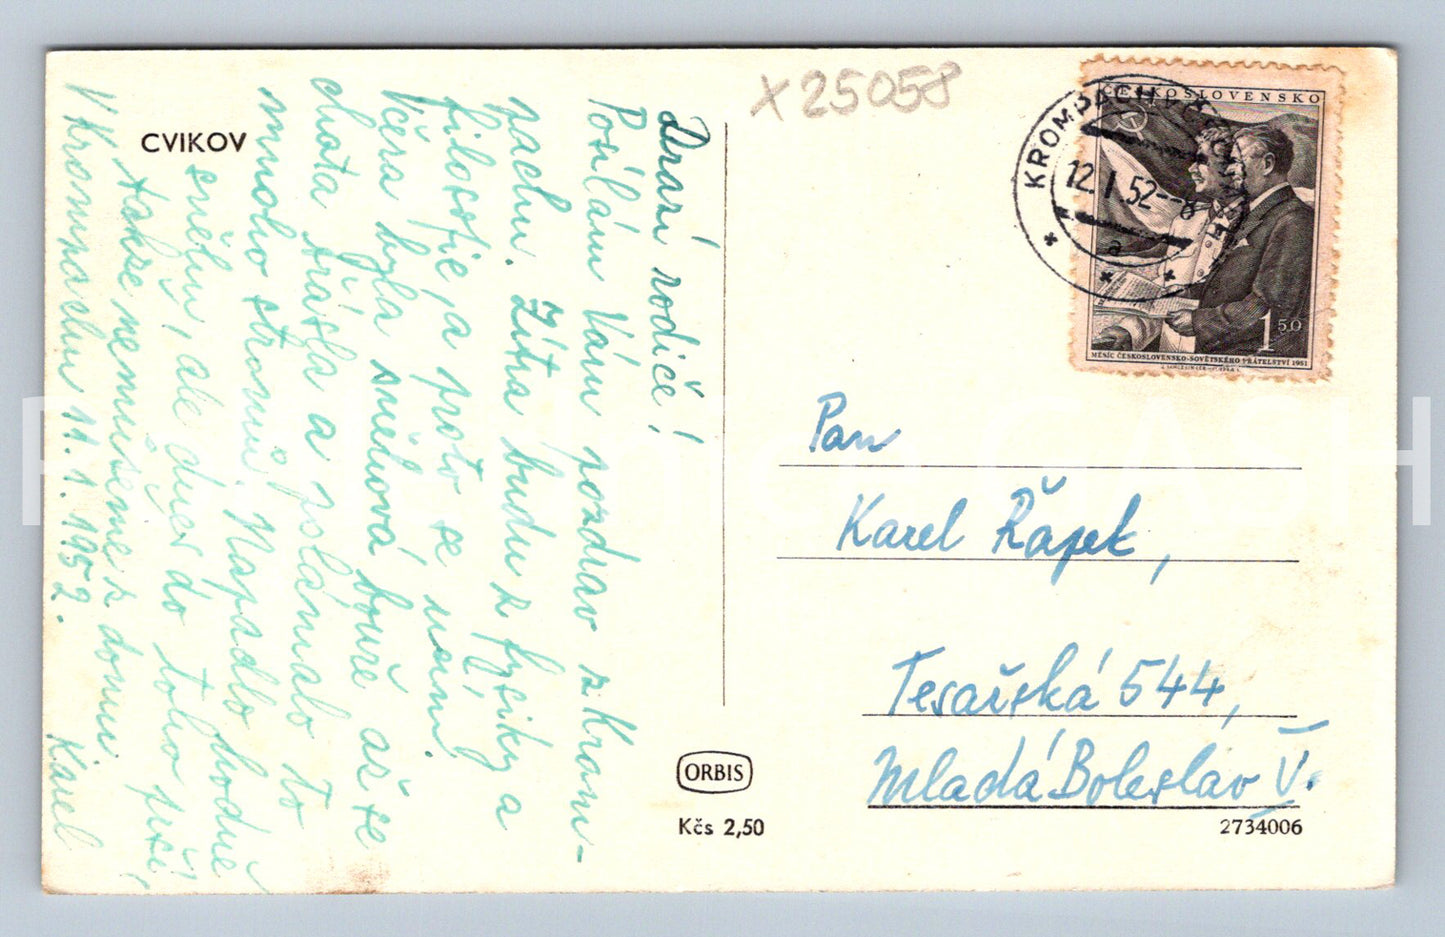 X 25058
CVIKOV
Drazí rodiče!
Posílám Vám pozdrav z Krom-
pachu. Zítra budu z fyziky a
filosofie ja proto se učím.
Včera byla sněhová bouře až se
chata třásla a polámalo to
mnoho stromů. Napadlo hodně
sněhu, ale dnes do toho prší,
takže nemůžeme z domu.
V Krompachu 11.1.1952. Karel
ČESKOSLOVENSKO
KROMPACH
12.I.52--8
a
1 50
MĚSÍC ČESKOSLOVENSKO-SOVĚTSKÉHO PŘÁTELSTVÍ 1951
Pan
Karel Řápek,
Tesařská 544,
Mladá Boleslav V.
ORBIS
Kčs 2,50
2734006